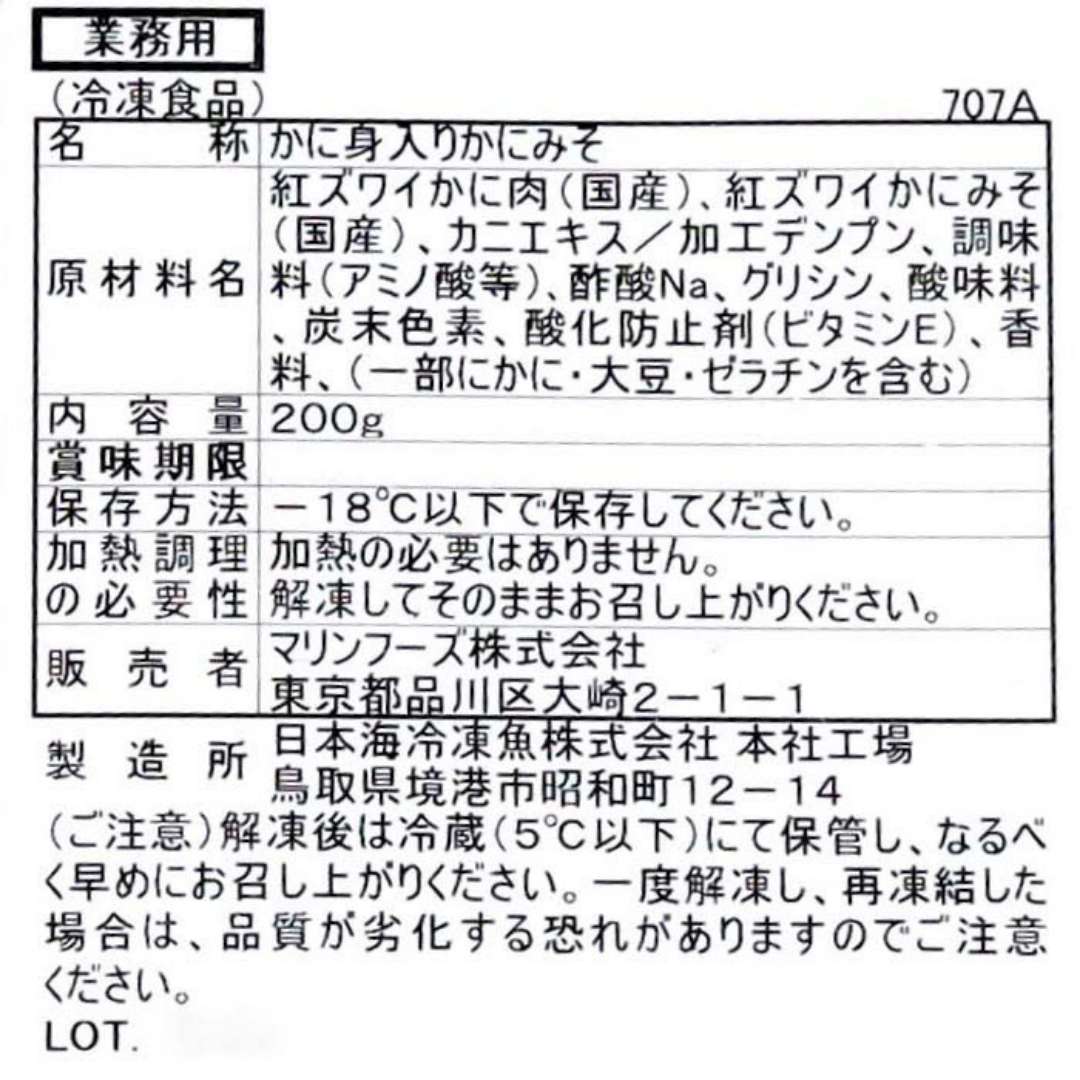 業務用
(冷凍食品) 707A
名称 かに身入りかにみそ
原材料名 紅ズワイかに肉(国産)、紅ズワイかにみそ
(国産)、カニエキス/加工デンプン、調味
料(アミノ酸等)、酢酸Na、グリシン、酸味料
、炭末色素、酸化防止剤(ビタミンE)、香
料、(一部にかに・大豆・ゼラチンを含む)
内容量 200g
賞味期限
保存方法 -18℃以下で保存してください。
加熱調理 加熱の必要はありません。
の必要性 解凍してそのままお召し上がりください。
販売者 マリンフーズ株式会社
東京都品川区大崎2-1-1
製造所 日本海冷凍魚株式会社 本社工場
鳥取県境港市昭和町12-14
(ご注意)解凍後は冷蔵(5℃以下)にて保管し、なるべ
く早めにお召し上がりください。一度解凍し、再凍結した
場合は、品質が劣化する恐れがありますのでご注意
ください。
LOT.